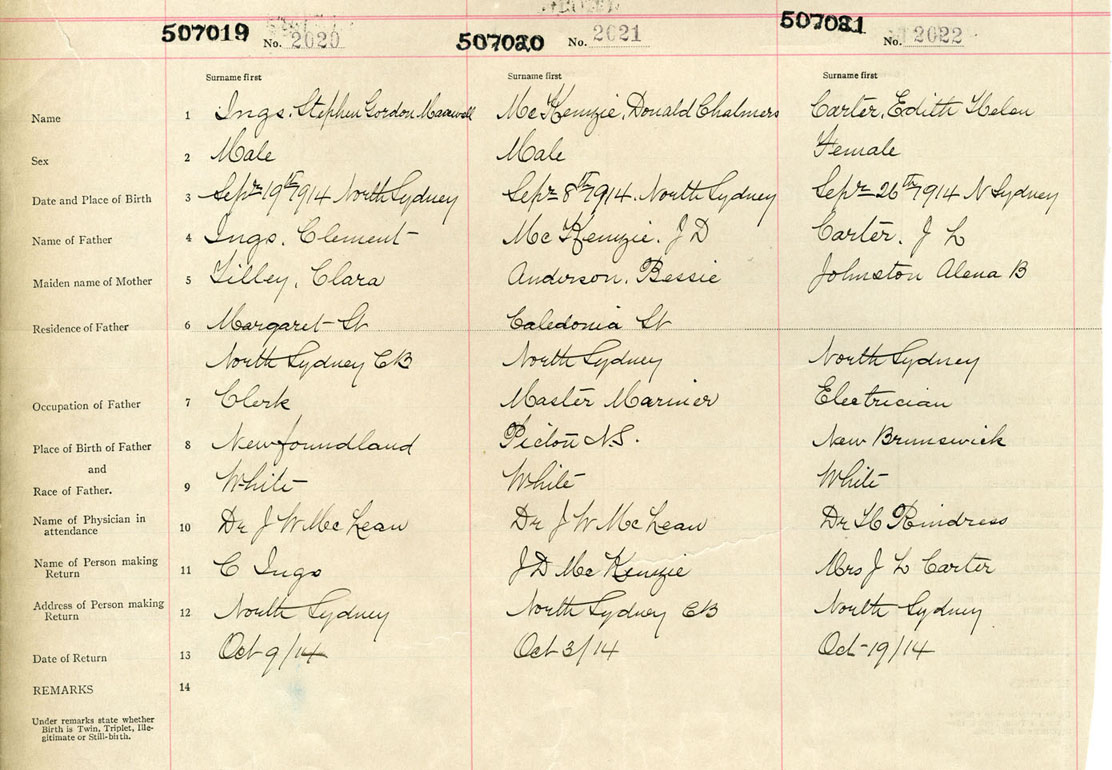 507019 No. 2020 507020 No. 2021 507021 No. 2022
Surname first Surname first Surname first
Name 1 Ings, Stephen Gordon Maxwell McKenzie, Donald Chalmers Carter, Edith Helen
Sex 2 Male Male Female
Date and Place of Birth 3 Sepr 19th 1914 North Sydney Sepr 8th 1914. North Sydney Sepr 26th 1914 N Sydney
Name of Father 4 Ings, Clement McKenzie, J D Carter, J L
Maiden name of Mother 5 Lilley, Clara Anderson, Bessie Johnston Alena B
Residence of Father 6 Margaret St Caledonia St
North Sydney CB North Sydney North Sydney
Occupation of Father 7 Clerk Master Mariner Electrician
Place of Birth of Father 8 Newfoundland Pictou N.S. New Brunswick
and
Race of Father. 9 White White White
Name of Physician in
attendance 10 Dr J W McLean Dr J W McLean Dr Rindress
Name of Person making
Return 11 C Ings J D McKenzie Mrs J L Carter
Address of Person making
Return 12 North Sydney North Sydney CB North Sydney
Date of Return 13 Oct 9/14 Oct 3/14 Oct 19/14
REMARKS 14
Under remarks state whether
Birth is Twin, Triplet, Ille-
gitimate or Still-birth.